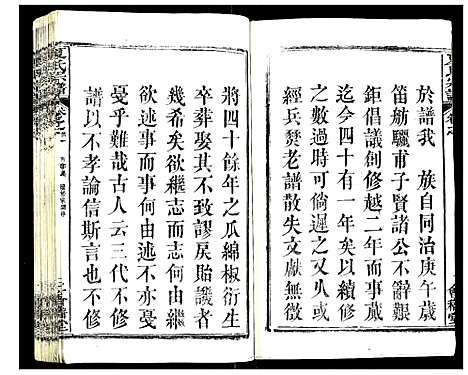 於譜我　族自同治庚午歲
笛舫驪甫子賢諸公不辭艱
鉅倡議創修越二年始成書
迄今四十有一年矣以續修
之數過時可倘遲之又久或
經兵燹老譜散失文獻無徵
將四十餘年之瓜綿椒衍生
卒葬娶其不致謬戾貽譏者
幾希矣欲繼志而志何由繼
欲述事而事何由述不亦戞
戞乎難哉古人云三代不修
譜以不孝論信斯言也不修